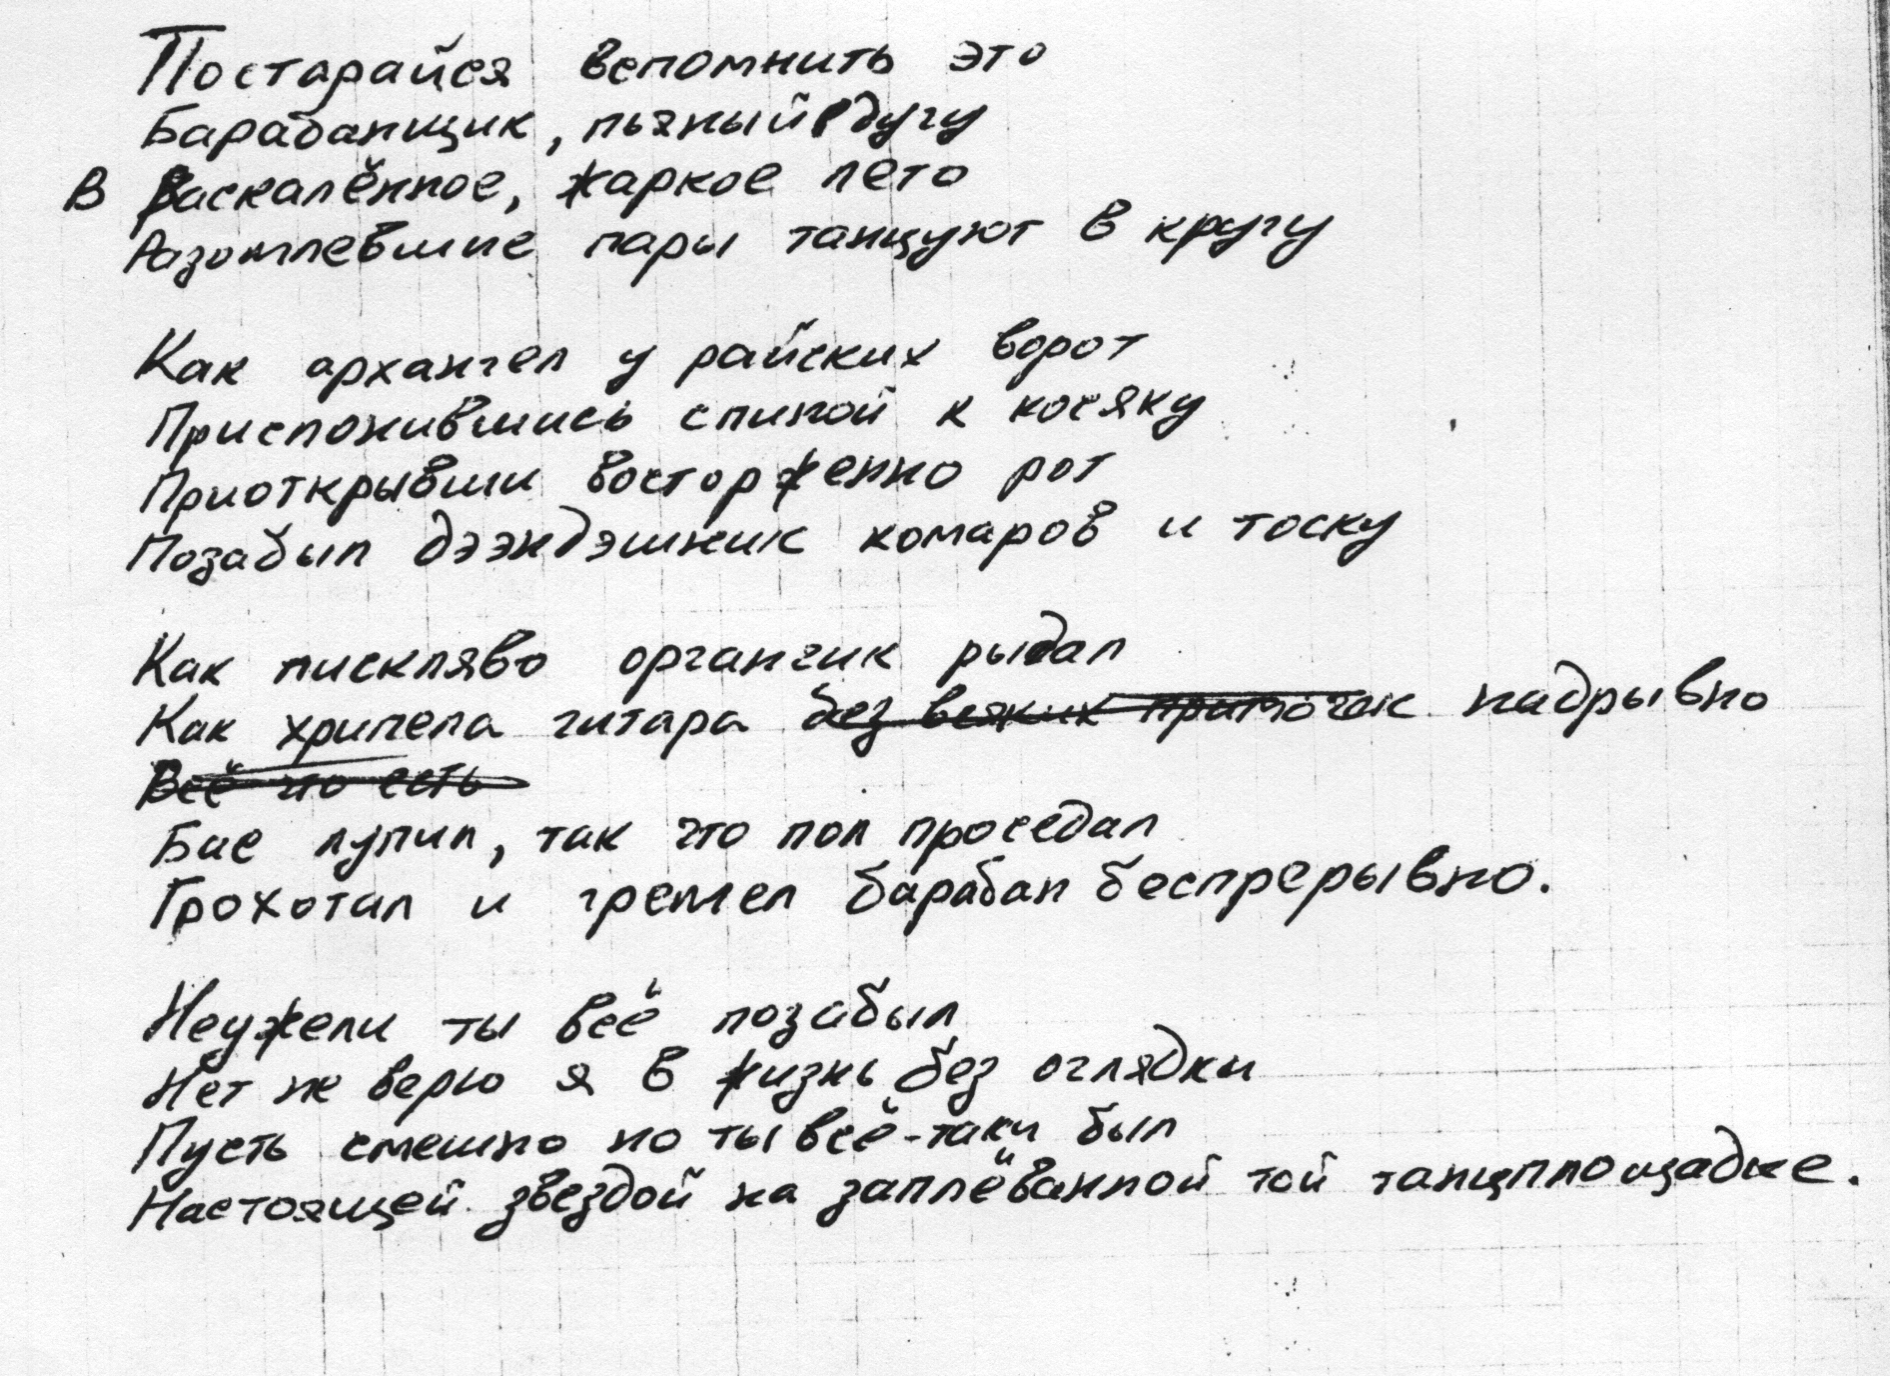 Постарайся вспомнить это
Барабанщик, пьяный в дугу
В раскалённое, жаркое лето
Разомлевшие пары танцуют в кругу
Как архангел у райских ворот
Прислонившись спиной к косяку
Приоткрывши восторженно рот
Позабыл дээндэшник комаров и тоску
Как пискляво органчик рыдал
Как хрипела гитара без всяких примочек надрывно
Всё что есть
Бас лупил, так что пол проседал
Грохотал и гремел барабан беспрерывно.
Неужели ты всё позабыл
Нет не верю я в жизнь без оглядки
Пусть смешно но ты всё-таки был
Настоящей звездой на заплёванной той танцплощадке.